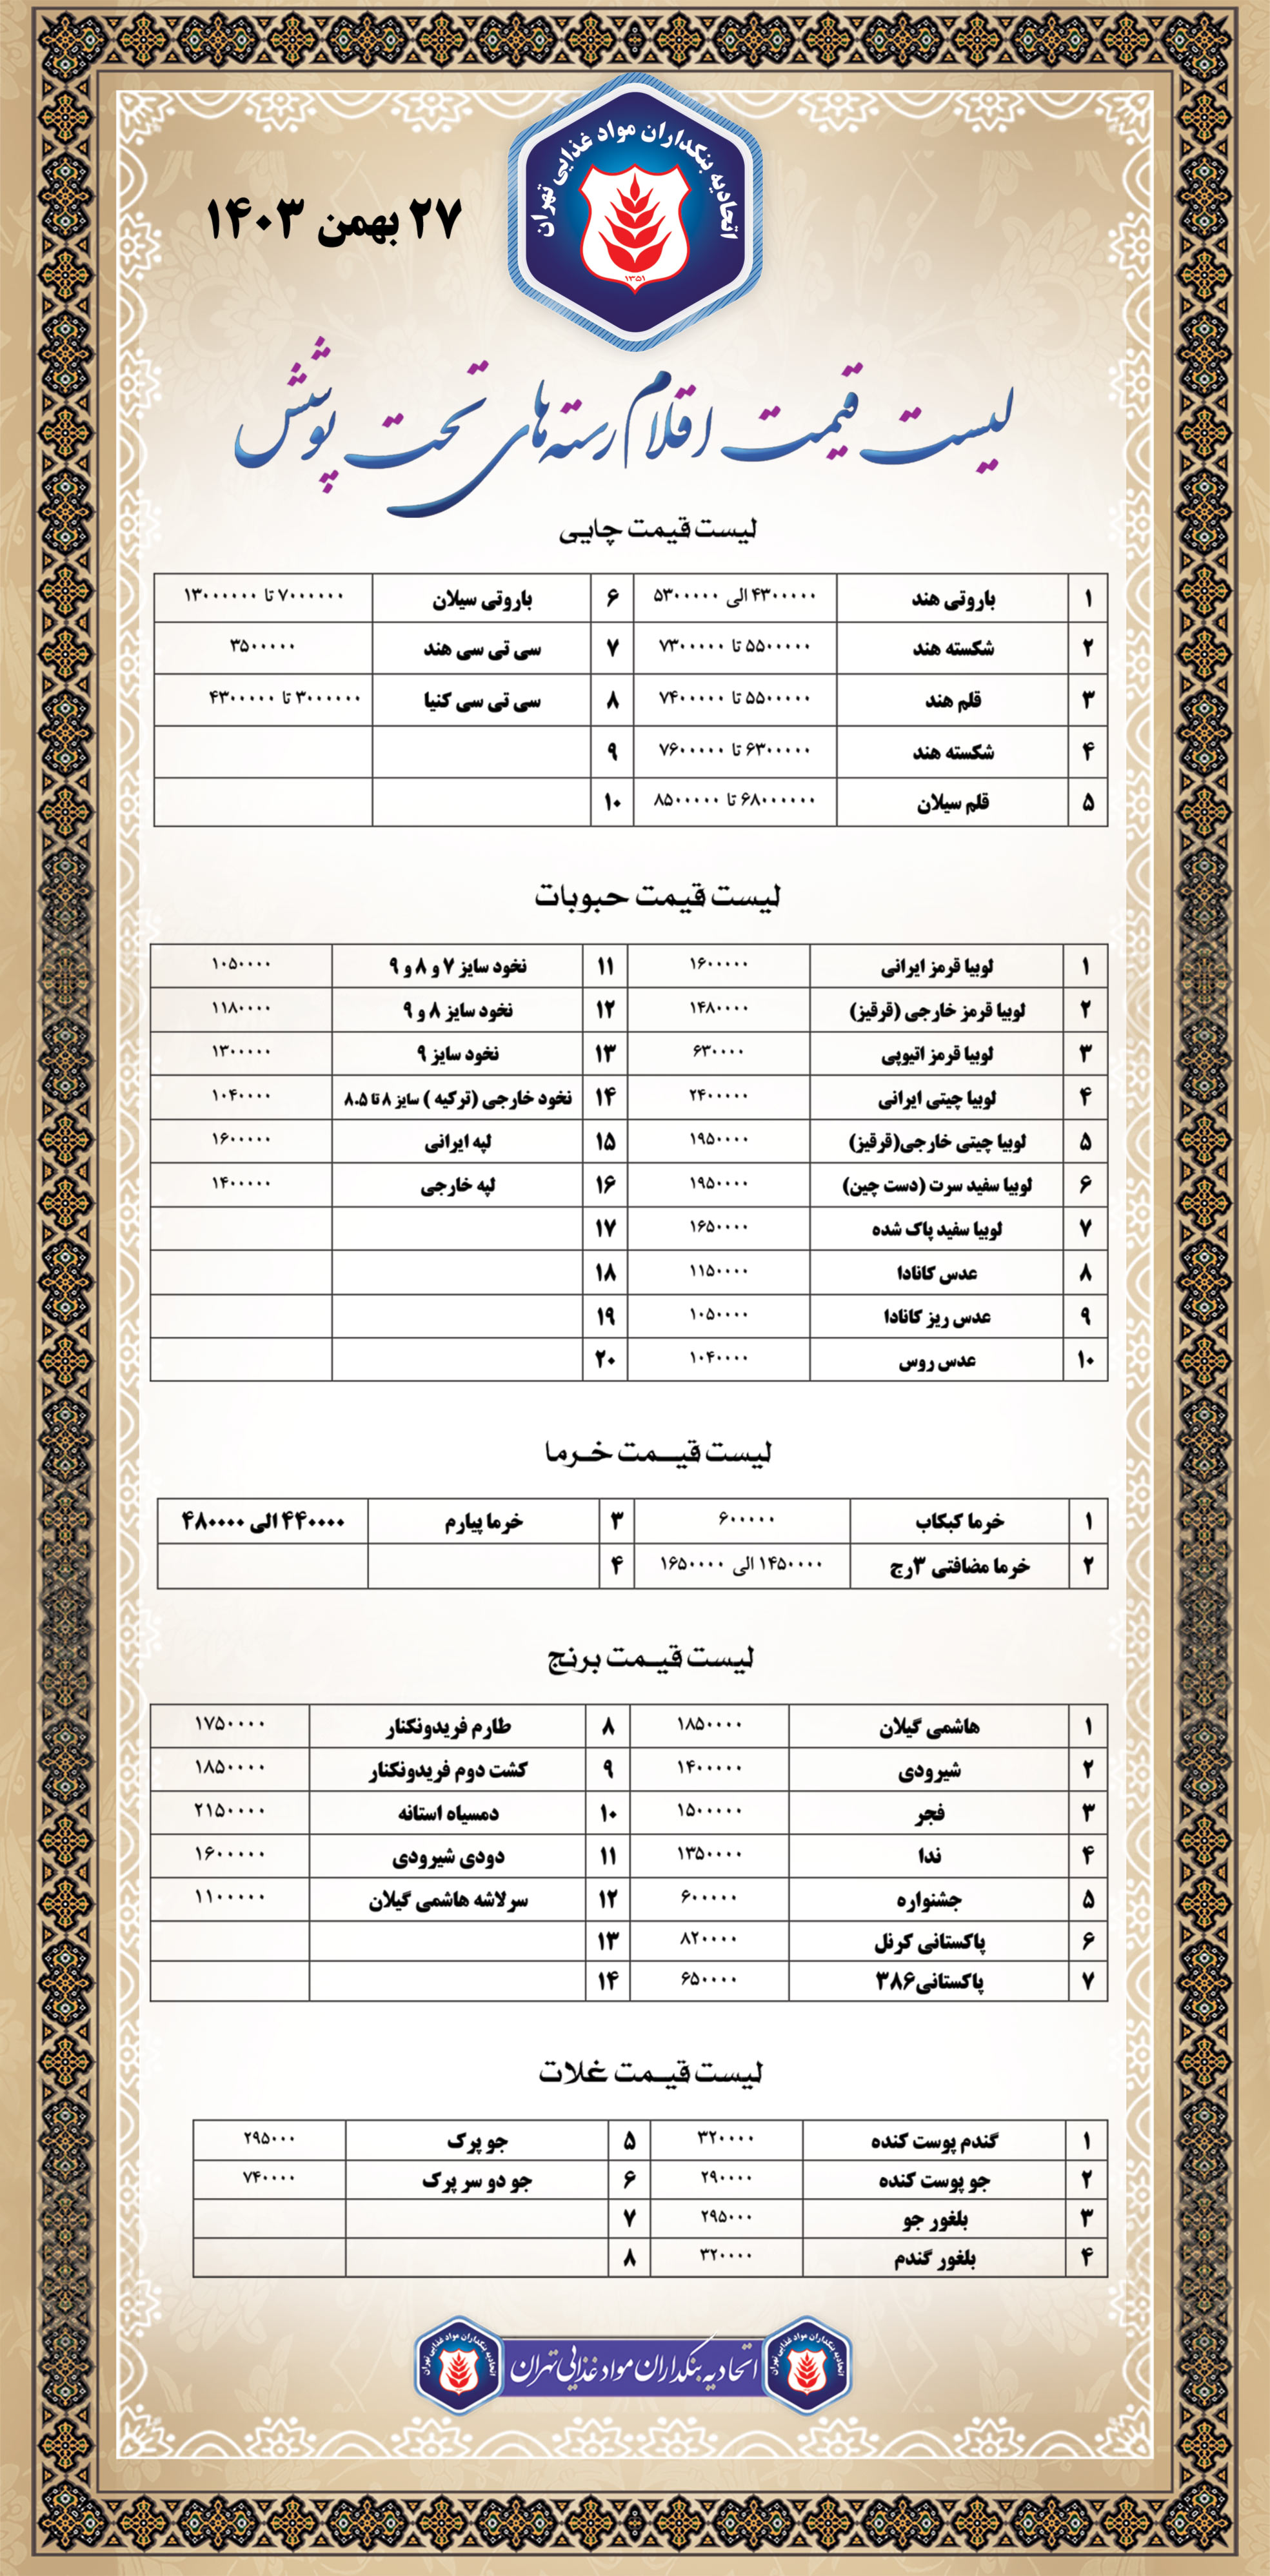 اتحادیه بنکداران مواد غذایی تهران
۱۳۵۱
۲۷ بهمن ۱۴۰۳
لیست قیمت اقلام رسته‌های تحت پوشش
لیست قیمت چایی
۱ باروتی هند ۴۳۰۰۰۰۰ الی ۵۳۰۰۰۰۰ ۶ باروتی سیلان ۷۰۰۰۰۰۰ تا ۱۳۰۰۰۰۰۰
۲ شکسته هند ۵۵۰۰۰۰۰ تا ۷۳۰۰۰۰۰ ۷ سی تی سی هند ۳۵۰۰۰۰۰
۳ قلم هند ۵۵۰۰۰۰۰ تا ۷۴۰۰۰۰۰ ۸ سی تی سی کنیا ۳۰۰۰۰۰۰ تا ۴۳۰۰۰۰۰
۴ شکسته هند ۶۳۰۰۰۰۰ تا ۷۶۰۰۰۰۰ ۹
۵ قلم سیلان ۶۸۰۰۰۰۰۰ تا ۸۵۰۰۰۰۰ ۱۰
لیست قیمت حبوبات
۱ لوبیا قرمز ایرانی ۱۶۰۰۰۰۰ ۱۱ نخود سایز ۷ و ۸ و ۹ ۱۰۵۰۰۰۰
۲ لوبیا قرمز خارجی (قرقیز) ۱۴۸۰۰۰۰ ۱۲ نخود سایز ۸ و ۹ ۱۱۸۰۰۰۰
۳ لوبیا قرمز اتیوپی ۶۳۰۰۰۰ ۱۳ نخود سایز ۹ ۱۳۰۰۰۰۰
۴ لوبیا چیتی ایرانی ۲۴۰۰۰۰۰ ۱۴ نخود خارجی (ترکیه ) سایز ۸ تا ۸.۵ ۱۰۴۰۰۰۰
۵ لوبیا چیتی خارجی(قرقیز) ۱۹۵۰۰۰۰ ۱۵ لپه ایرانی ۱۶۰۰۰۰۰
۶ لوبیا سفید سرت (دست چین) ۱۹۵۰۰۰۰ ۱۶ لپه خارجی ۱۴۰۰۰۰۰
۷ لوبیا سفید پاک شده ۱۶۵۰۰۰۰ ۱۷
۸ عدس کانادا ۱۱۵۰۰۰۰ ۱۸
۹ عدس ریز کانادا ۱۰۵۰۰۰۰ ۱۹
۱۰ عدس روس ۱۰۴۰۰۰۰ ۲۰
لیست قیـمت خـرما
۱ خرما کبکاب ۶۰۰۰۰۰ ۳ خرما پیارم ۴۴۰۰۰۰ الی ۴۸۰۰۰۰
۲ خرما مضافتی ۳رج ۱۴۵۰۰۰۰ الی ۱۶۵۰۰۰۰ ۴
لیست قیـمت برنج
۱ هاشمی گیلان ۱۸۵۰۰۰۰ ۸ طارم فریدونکنار ۱۷۵۰۰۰۰
۲ شیرودی ۱۴۰۰۰۰۰ ۹ کشت دوم فریدونکنار ۱۸۵۰۰۰۰
۳ فجر ۱۵۰۰۰۰۰ ۱۰ دمسیاه استانه ۲۱۵۰۰۰۰
۴ ندا ۱۳۵۰۰۰۰ ۱۱ دودی شیرودی ۱۶۰۰۰۰۰
۵ جشنواره ۶۰۰۰۰۰ ۱۲ سرلاشه هاشمی گیلان ۱۱۰۰۰۰۰
۶ پاکستانی کرنل ۸۲۰۰۰۰ ۱۳
۷ پاکستانی۳۸۶ ۶۵۰۰۰۰ ۱۴
لیست قیـمت غلات
۱ گندم پوست کنده ۳۲۰۰۰۰ ۵ جو پرک ۲۹۵۰۰۰
۲ جو پوست کنده ۲۹۰۰۰۰ ۶ جو دو سر پرک ۷۴۰۰۰۰
۳ بلغور جو ۲۹۵۰۰۰ ۷
۴ بلغور گندم ۳۲۰۰۰۰ ۸
اتحادیه بنکداران مواد غذایی تهران
اتحادیه بنکداران مواد غذایی تهران
اتحادیه بنکداران مواد غذایی تهران